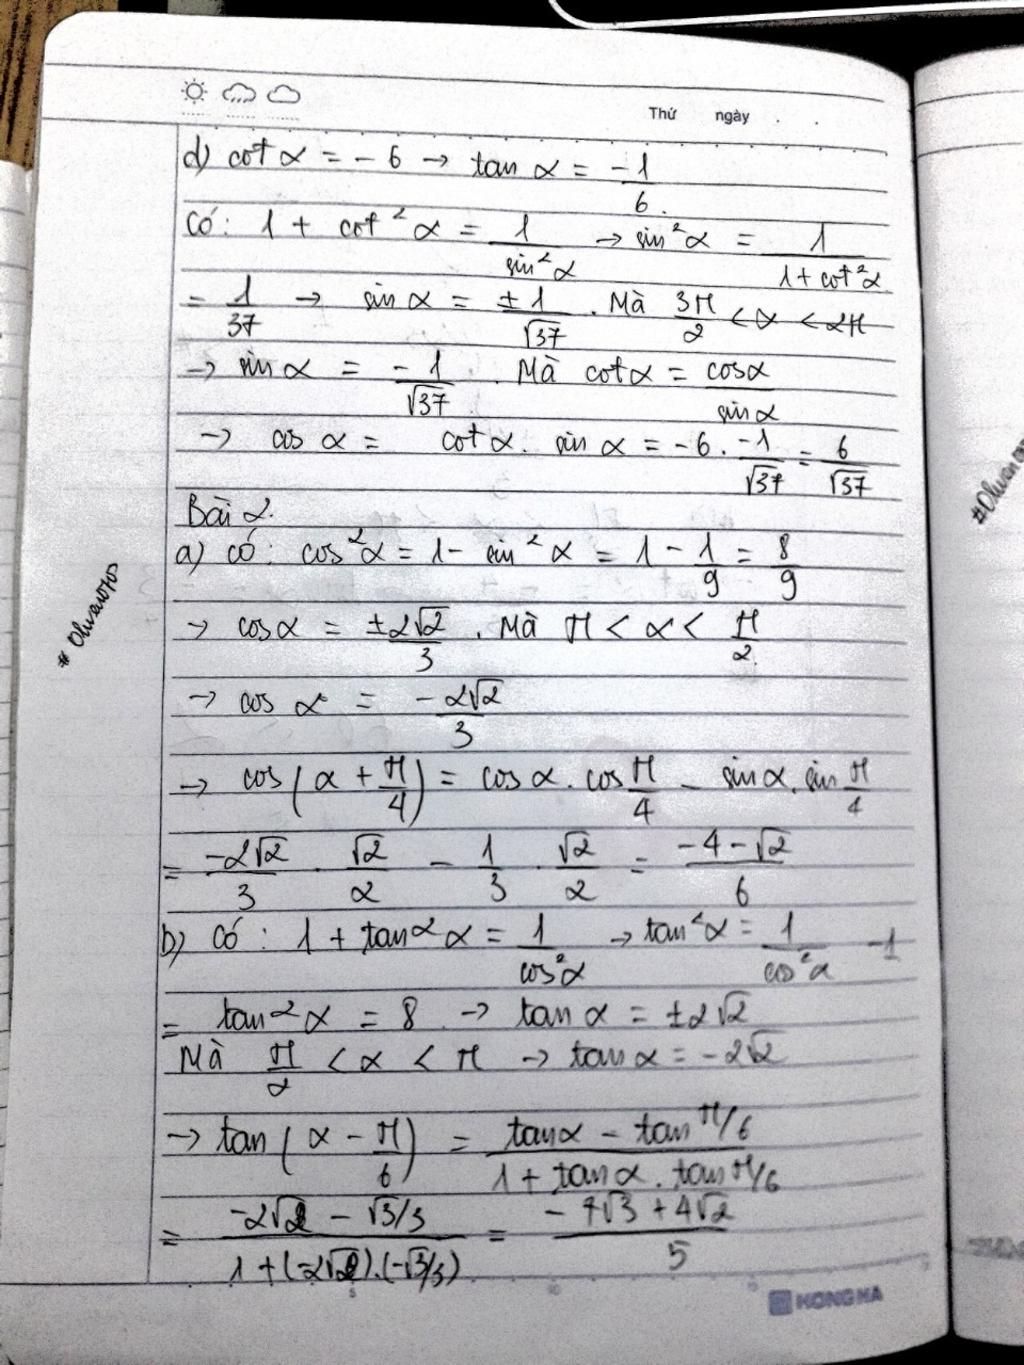 Thứ ngày
d) cot α = - 6 → tan α = -1/6.
Có: 1 + cot²α = 1/sin²α → sin²α = 1/(1+cot²α)
= 1/37 → sin α = ±1/√37. Mà 3π/2 < α < 2π
→ sin α = -1/√37. Mà cotα = cosα/sinα
→ cos α = cotα. sin α = -6 . -1/√37 = 6/√37
Bài 2.
a) có: cos²α = 1 - sin²α = 1 - 1/9 = 8/9
→ cosα = ±2√2/3. Mà π < α < π/2.
→ cos α = -2√2/3
→ cos(α + π/4) = cosα.cos π/4 - sinα.sin π/4
= -2√2/3 . √2/2 - 1/3 . √2/2 = (-4-√2)/6
b) Có: 1 + tan²α = 1/cos²α → tan²α = 1/cos²α -1
= tan²α = 8 → tan α = ±2√2
Mà π/2 < α < π → tan α = -2√2
→ tan(α - π/6) = (tanα - tan π/6)/(1 + tanα.tan π/6)
= (-2√2 - √3/3)/(1+(-2√2).(-√3/3)) = +4√2/5
# Olwen0703
HONG HA